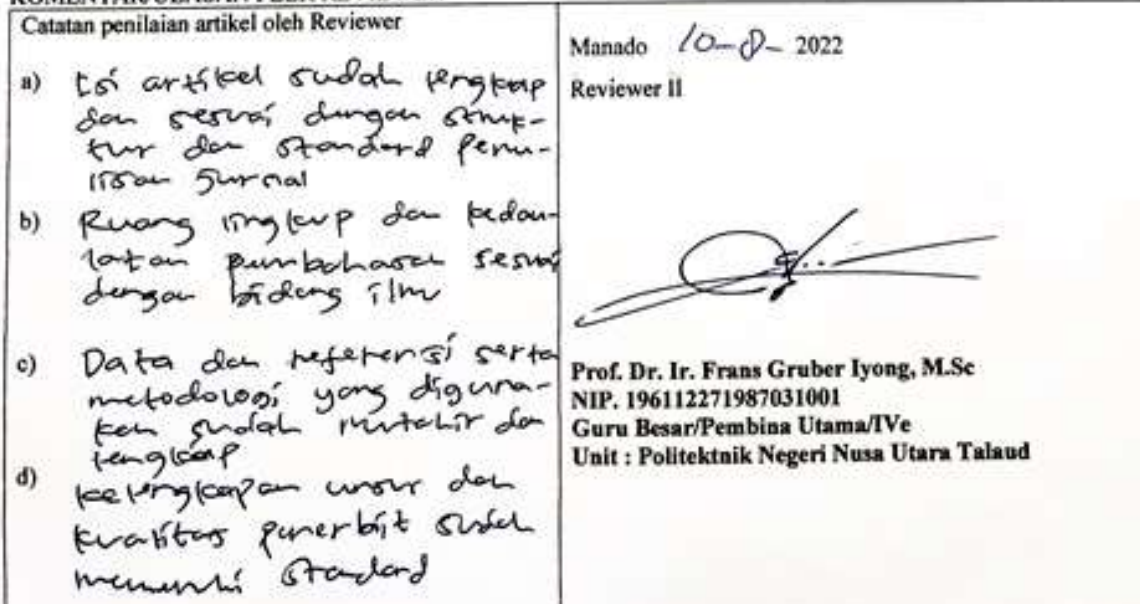 Catatan penilaian artikel oleh Reviewer
a) Isi artikel sudah lengkap
dan sesuai dengan struk-
tur dan standard penu-
lisan Jurnal
b) Ruang lingkup dan kedau-
latan pembahasan sesuai
dengan bidang ilmu
c) Data dan referensi serta
metodologi yang diguna-
kan sudah mutahir dan
lengkap
d) kelengkapan unsur dan
kualitas penerbit sudah
memenuhi standard
Manado 10-8-2022
Reviewer II
Prof. Dr. Ir. Frans Gruber Iyong, M.Sc
NIP. 196112271987031001
Guru Besar/Pembina Utama/IVe
Unit : Politektnik Negeri Nusa Utara Talaud